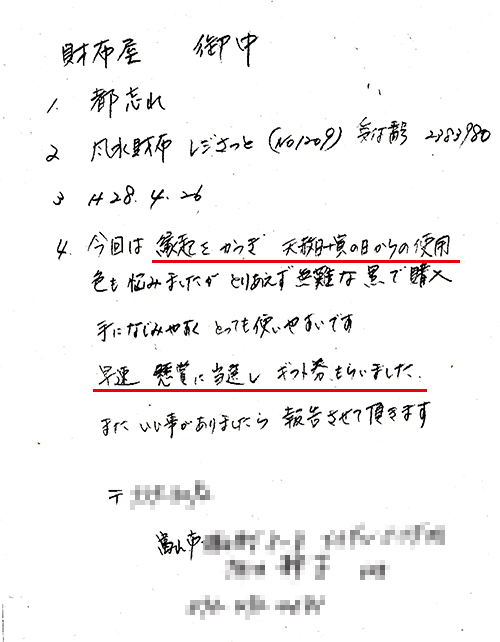 財布屋 御中
1. 都忘れ
2 風水財布 レジさっと (No1209) 受付番号 2383980
3 H28.4.26
4. 今回は 縁起を かつぎ 天赦日+寅の日からの使用
色も悩みましたが とりあえず無難な黒で購入
手になじみやすく とっても使いやすいです
早速 懸賞に当選し ギフト券もらいました.
また いい事がありましたら 報告させて頂きます
〒
富山市